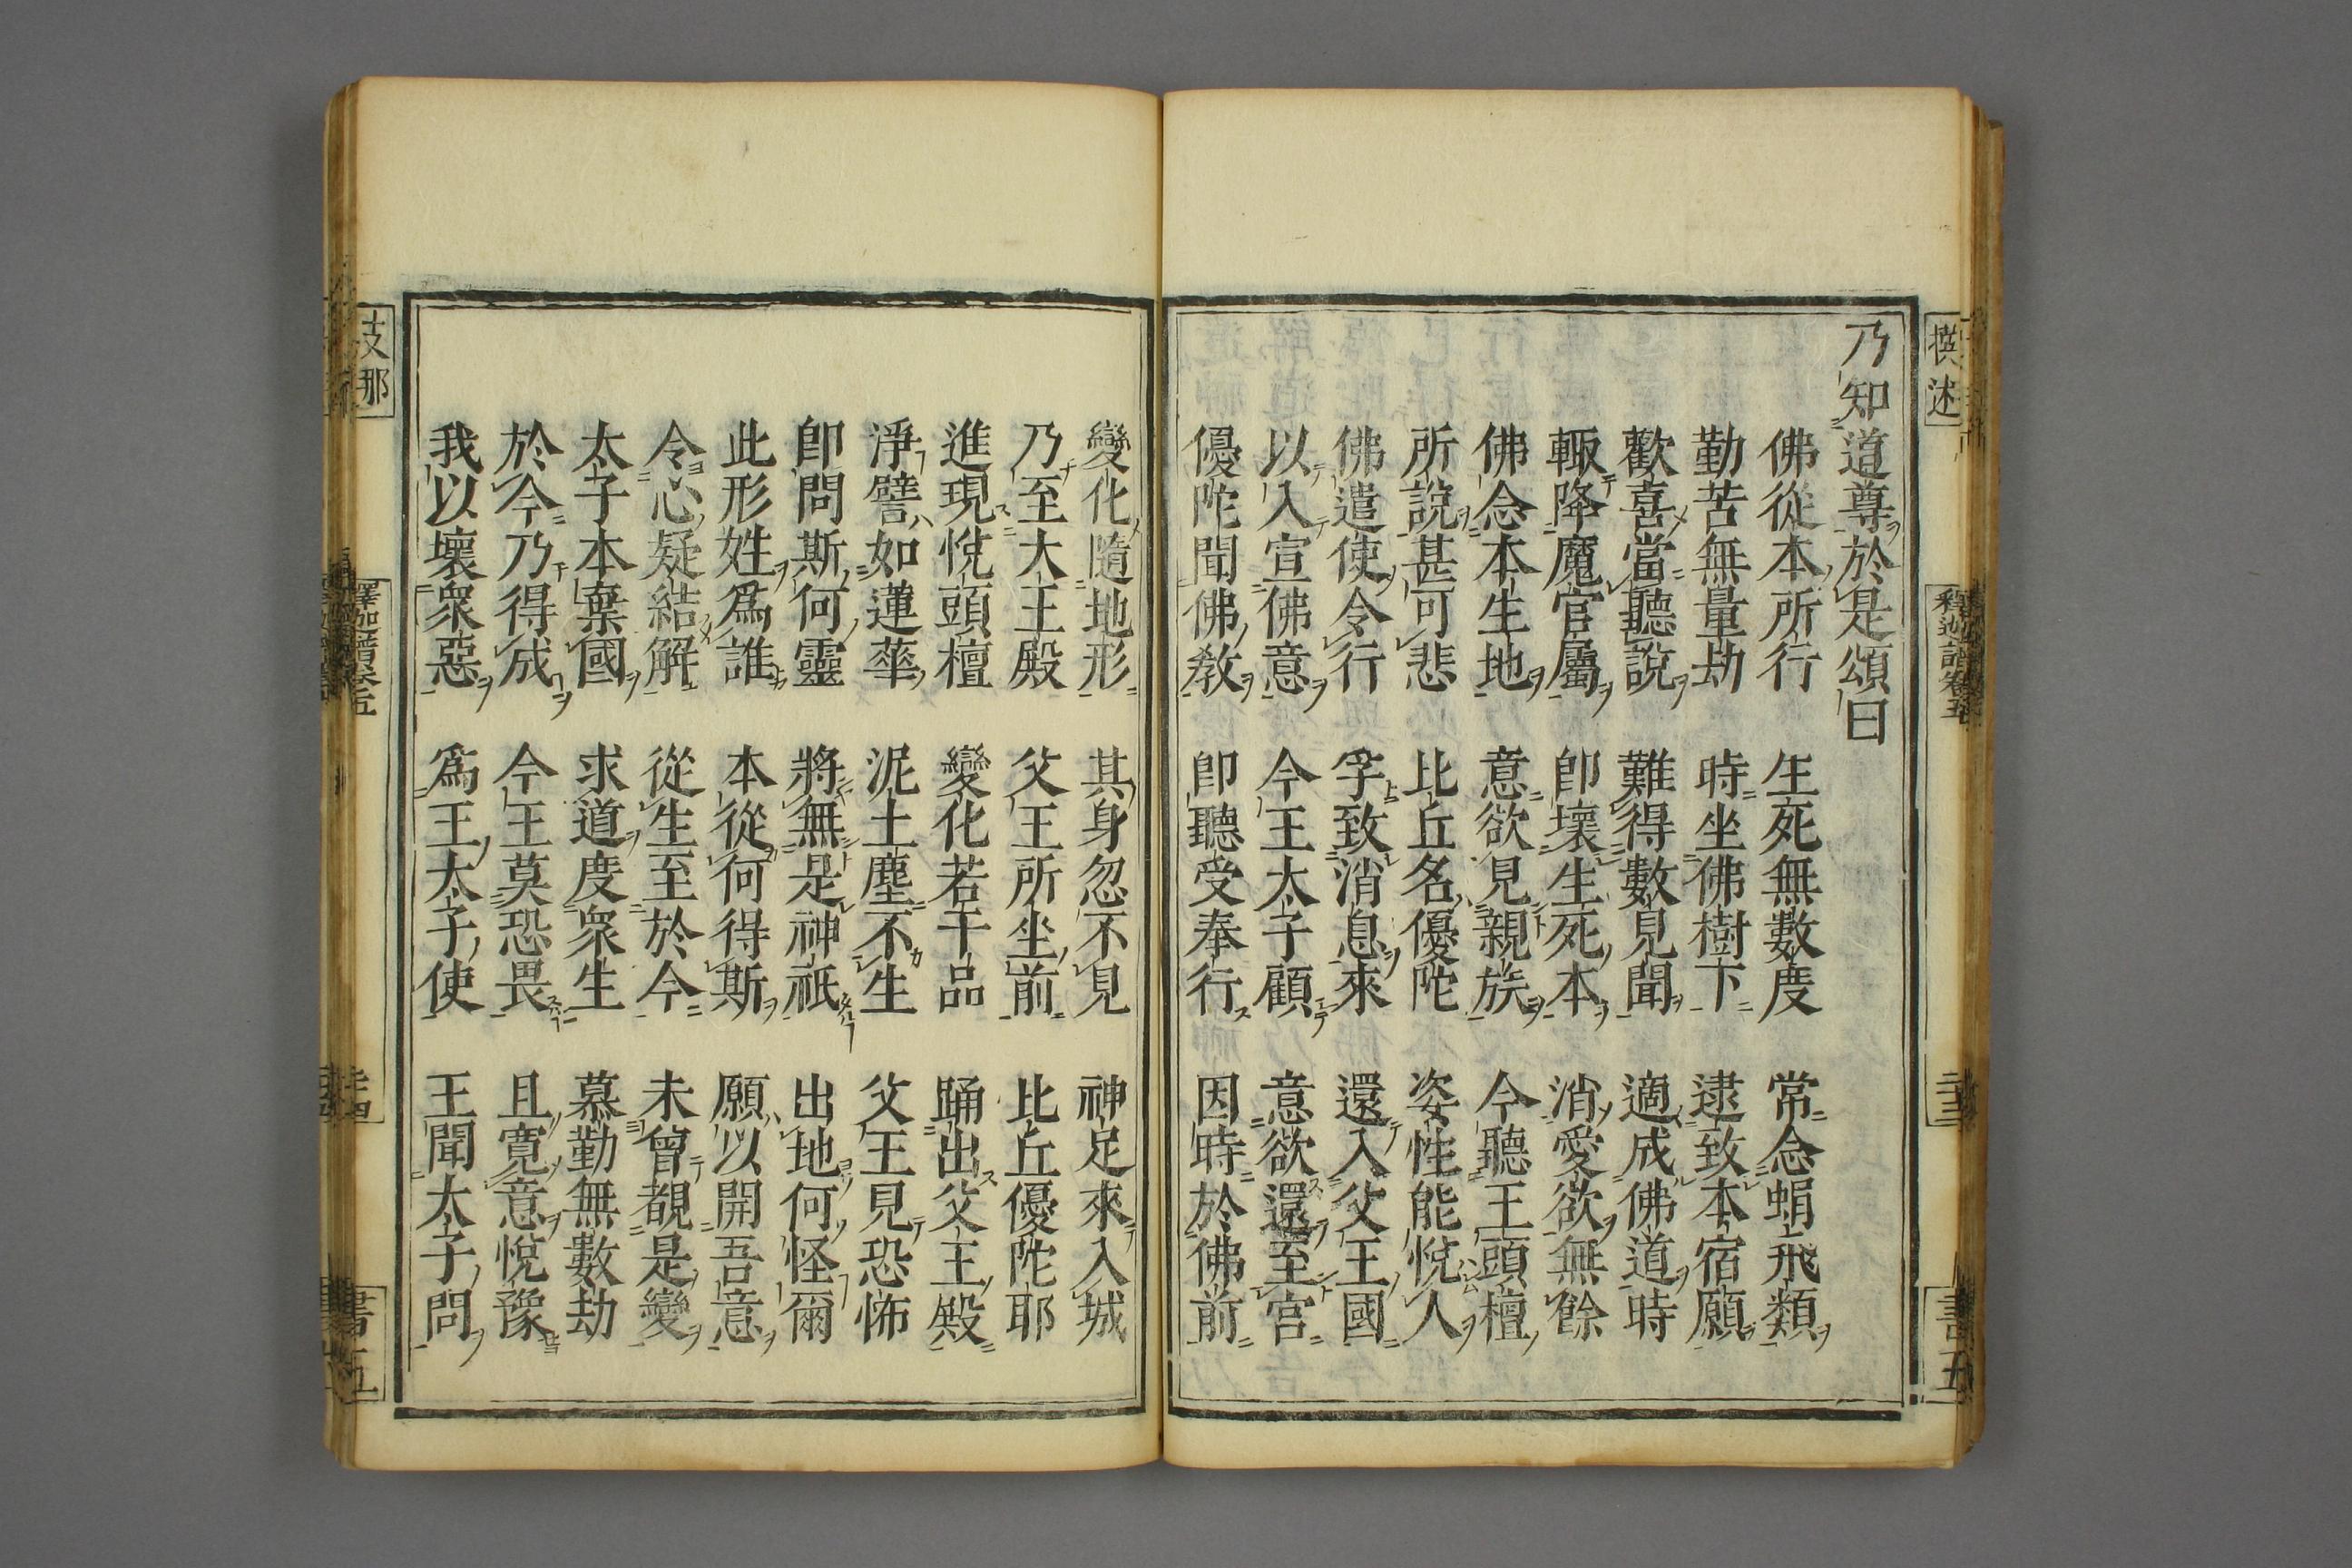 乃知道尊於是頌曰
佛從本所行 生死無數度 常念蜎飛類
勤苦無量劫 時坐佛樹下 逮致本宿願
歡喜當聽說 難得數見聞 適成佛道時
輙降魔官屬 卽壞生死本 消愛欲無餘
佛念本生地 意欲見親族 今聽王頭檀
所說甚可悲 比丘名優陀 姿性能悅人
佛遣使令行 孚致消息來 還入父王國
以入宣佛意 今王太子顧 意欲還至宮
優陀聞佛教 卽聽受奉行 因時於佛前
變化隨地形 其身忽不見 神足來入城
乃至大王殿 父王所坐前 比丘優陀耶
進現悅頭檀 變化若干品 踊出父王殿
淨譬如蓮華 泥土塵不生 父王見恐怖
卽問斯何靈 將無是神祇 出地何怪爾
此形姓爲誰 本從何得斯 願以開吾意
令心疑結解 從生至於今 未曾覩是變
太子本棄國 求道度衆生 慕勤無數劫
於今乃得成 今王莫恐畏 且寬意悅豫
我以壞衆惡 爲王太子使 王聞太子問
撰述
釋迦譜卷五
二十三
書五
支那
釋迦譜卷五
二十四
書五